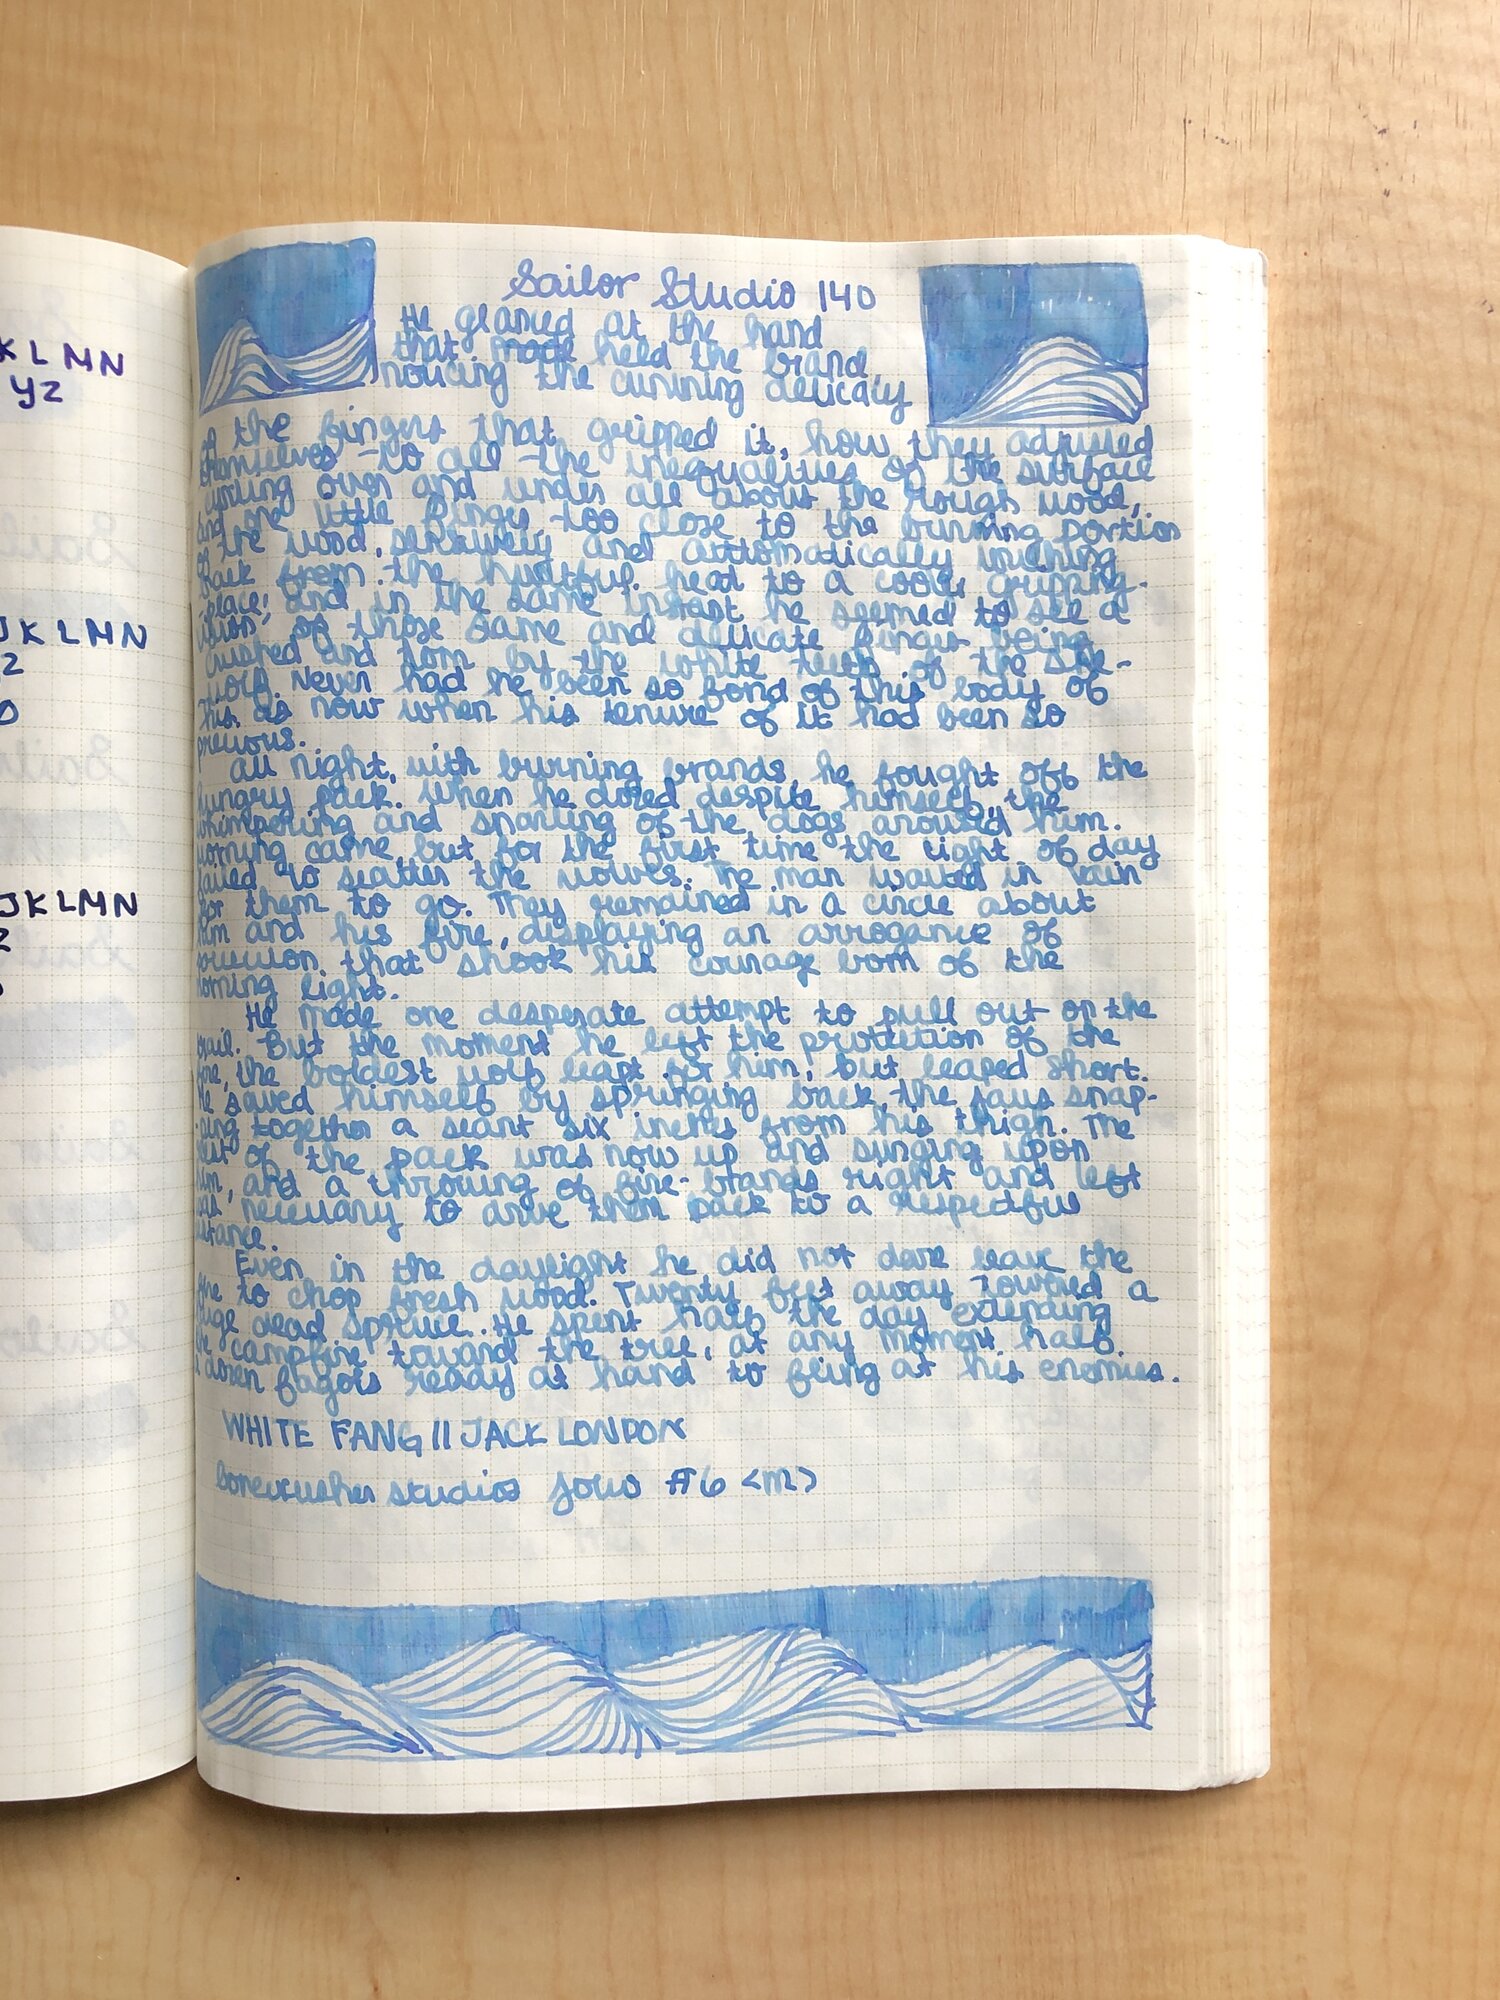 KLMN
YZ
JKLMN
Z
JKLMN
Z
Sailor Studio 140
He glanced at the hand
that held the brand,
noticing the cunning delicacy
of the fingers that gripped it, how they adjusted
themselves to all the inequalities of the surface
curling over and under all about the rough wood,
and one little finger too close to the burning portion
of the wood, sensitively and automatically writhing
back from the hurtful heat to a cooler gripping-
place; and in the same instant he seemed to see a
vision of those same and delicate fingers being
crushed and torn by the white teeth of the she-
wolf. Never had he been so fond of this body of
his as now when his tenure of it had been so
precious.
All night, with burning brands, he fought off the
hungry pack. When he dozed despite himself, the
whimpering and snarling of the dogs aroused him.
Morning came, but for the first time the light of day
failed to scatter the wolves. The man waited in vain
for them to go. They remained in a circle about
him and his fire, displaying an arrogance of
possession that shook his courage born of the
morning light.
He made one desperate attempt to pull out on the
trail. But the moment he left the protection of the
fire, the boldest wolf leapt for him, but leaped short.
He saved himself by springing back, the jaws snap-
ping together a scant six inches from his thigh. The
rest of the pack was now up and surging upon
him, and a throwing of fire-brands right and left
was necessary to drive them back to a respectful
distance.
Even in the daylight he did not dare leave the
fire to chop fresh wood. Twenty feet away towered a
huge dead spruce. He spent half the day extending
the campfire toward the tree, at any moment half
a dozen fagots ready at hand to fling at his enemies.
WHITE FANG // JACK LONDON
Bonecrusher Studios Jowo #6 <M>